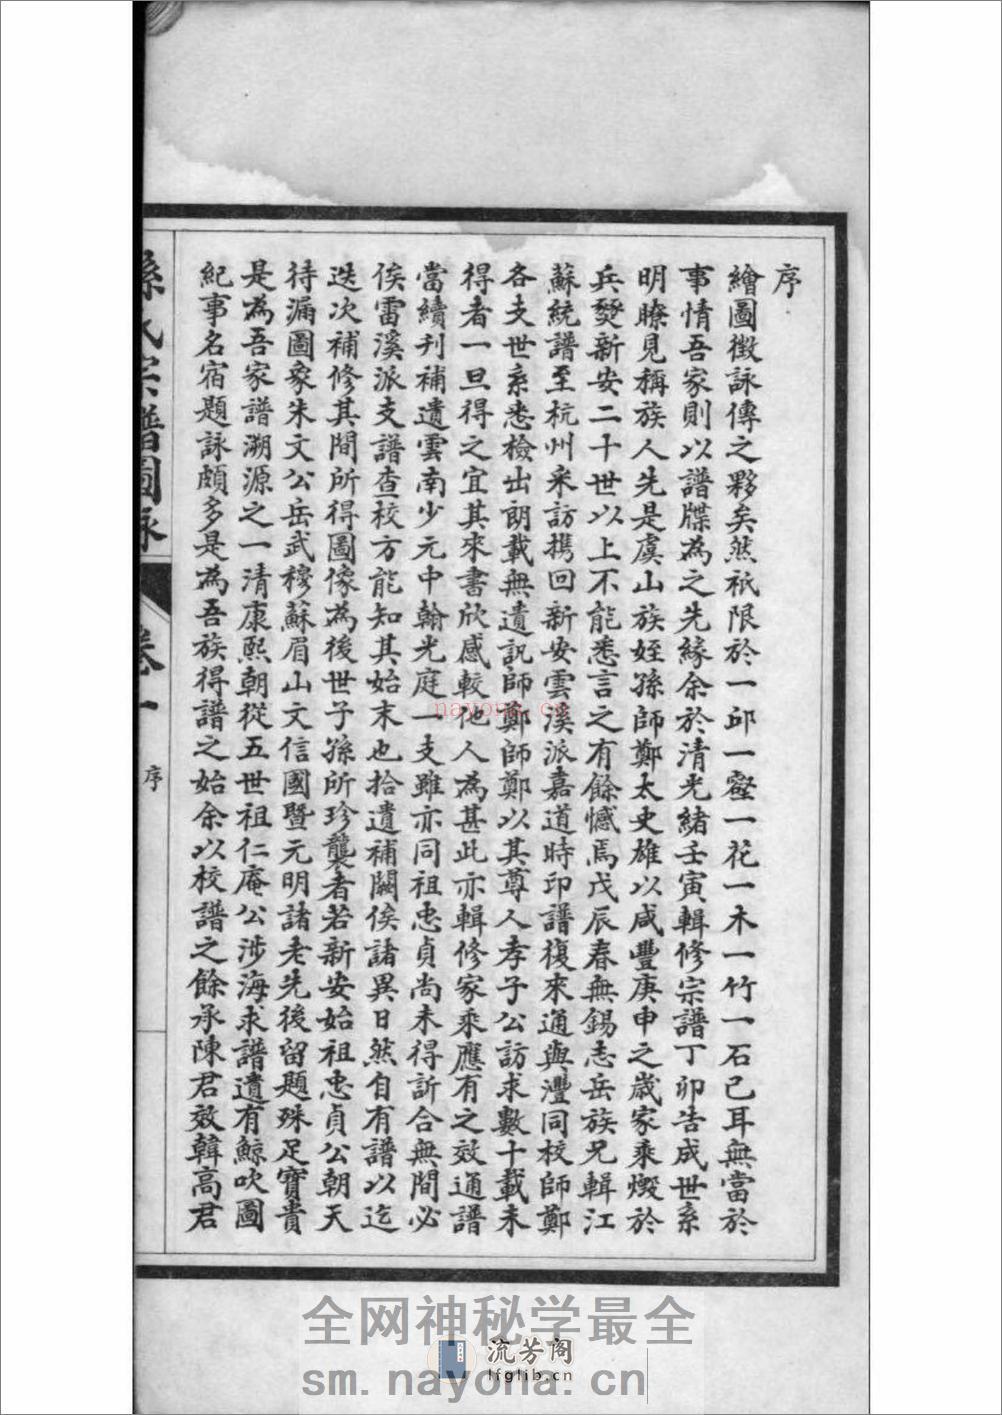 序
繪圖徵詠傳之夥矣然祇限於一邱一壑一花一木一竹一石已耳無當於
事情吾家則以譜牒為之先緣余於清光緒壬寅輯修宗譜丁卯告成世系
明瞭見稱族人先是虞山族姪孫師鄭太史雄以咸豐庚申之歲家乘燬於
兵燹新安二十世以上不能悉言之有餘憾焉戊辰春無錫志岳族兄輯江
蘇統譜至杭州采訪攜回新安雲溪派嘉道時印譜復來通與灃同校師鄭
各支世系悉檢出朗載無遺訊師鄭師鄭以其尊人孝子公訪求數十載未
得者一旦得之宜其來書欣感較他人為甚此亦輯修家乘應有之效通譜
當續刊補遺雲南少元中翰光庭一支雖亦同祖忠貞尚未得訢合無間必
俟雷溪派支譜查校方能知其始末也拾遺補闕俟諸異日然自有譜以迄
迭次補修其間所得圖像為後世子孫所珍襲者若新安始祖忠貞公朝天
待漏圖象朱文公岳武穆蘇眉山文信國暨元明諸老先後留題殊足寶貴
是為吾家譜溯源之一清康熙朝從五世祖仁庵公涉海求譜遺有鯨吹圖
紀事名宿題詠頗多是為吾族得譜之始余以校譜之餘承陳君效韓高君
孫氏宗譜圖詠
卷一
序
nayona.cn
全网神秘学最全
流芳阁
lfglib.cn
sm.nayona.cn